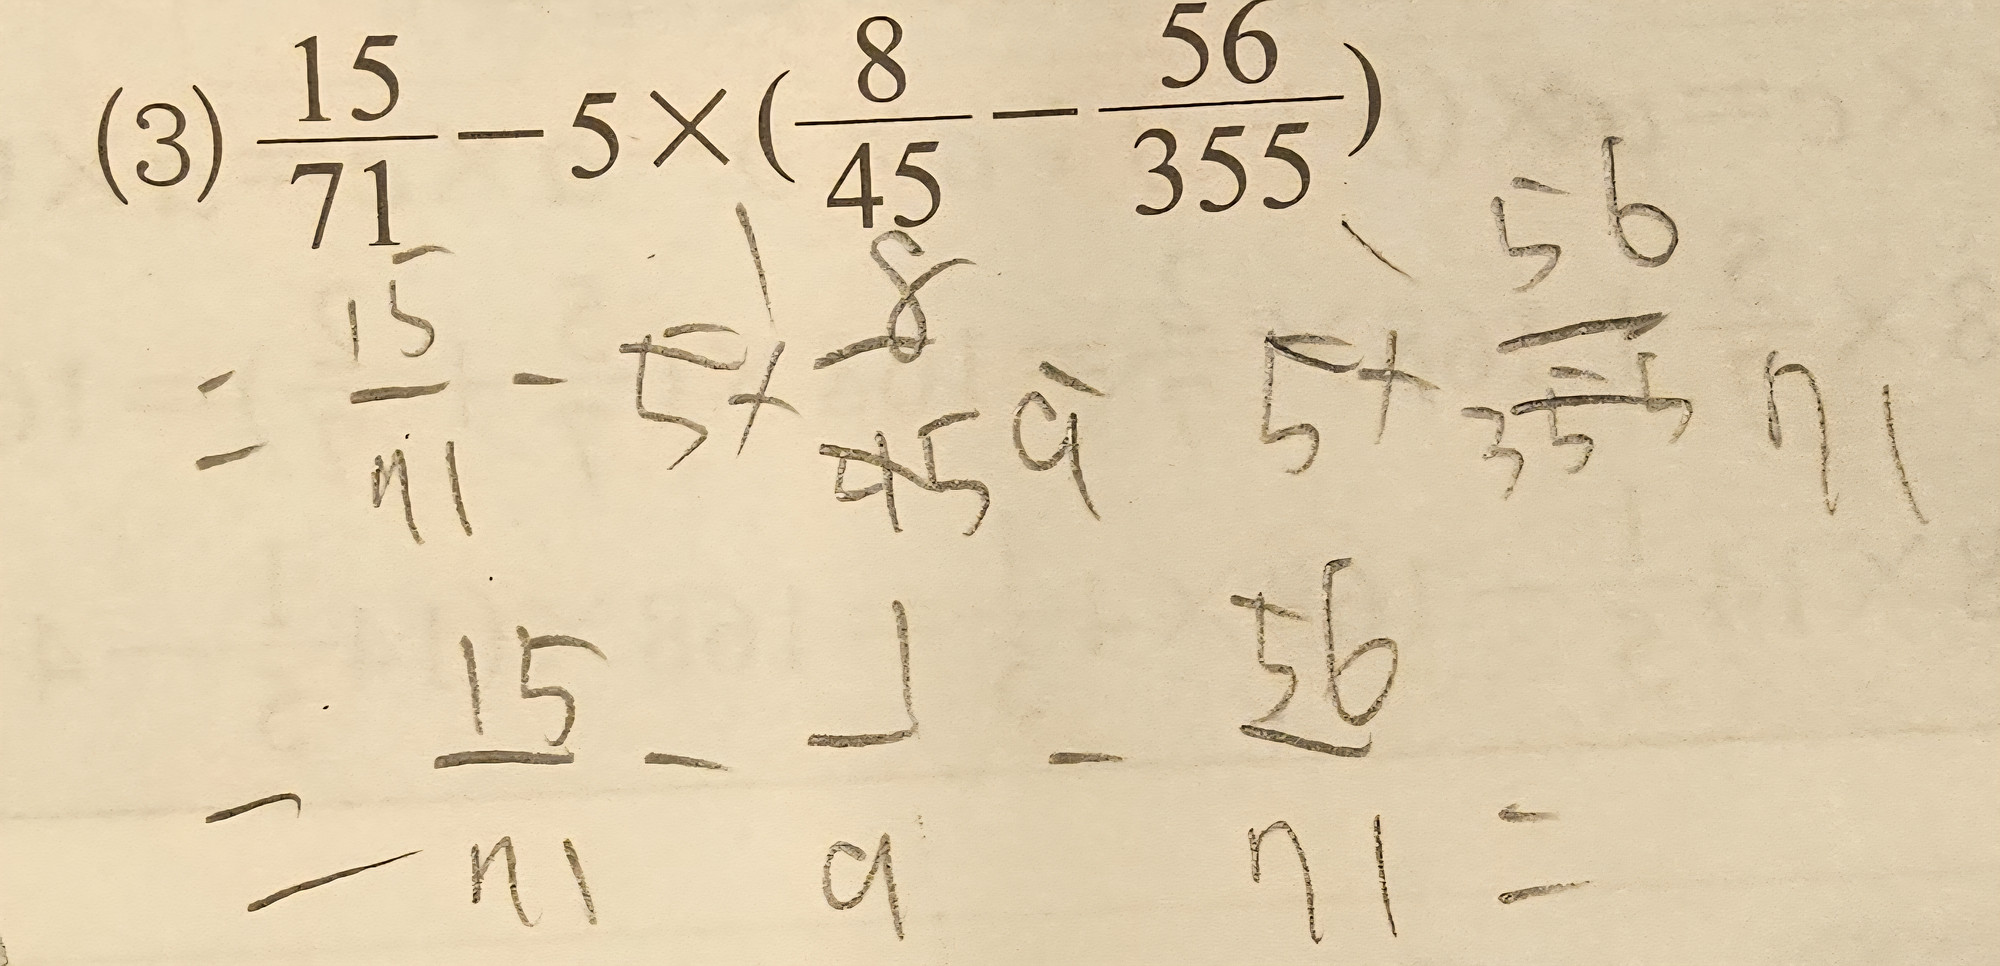 (3) 15/71 − 5 × ( 8/45 − 56/355 )
= 15/71 - 5 × 8/45 9 5 × 56/355 71
= 15/71 - 1/9 - 56/71 =